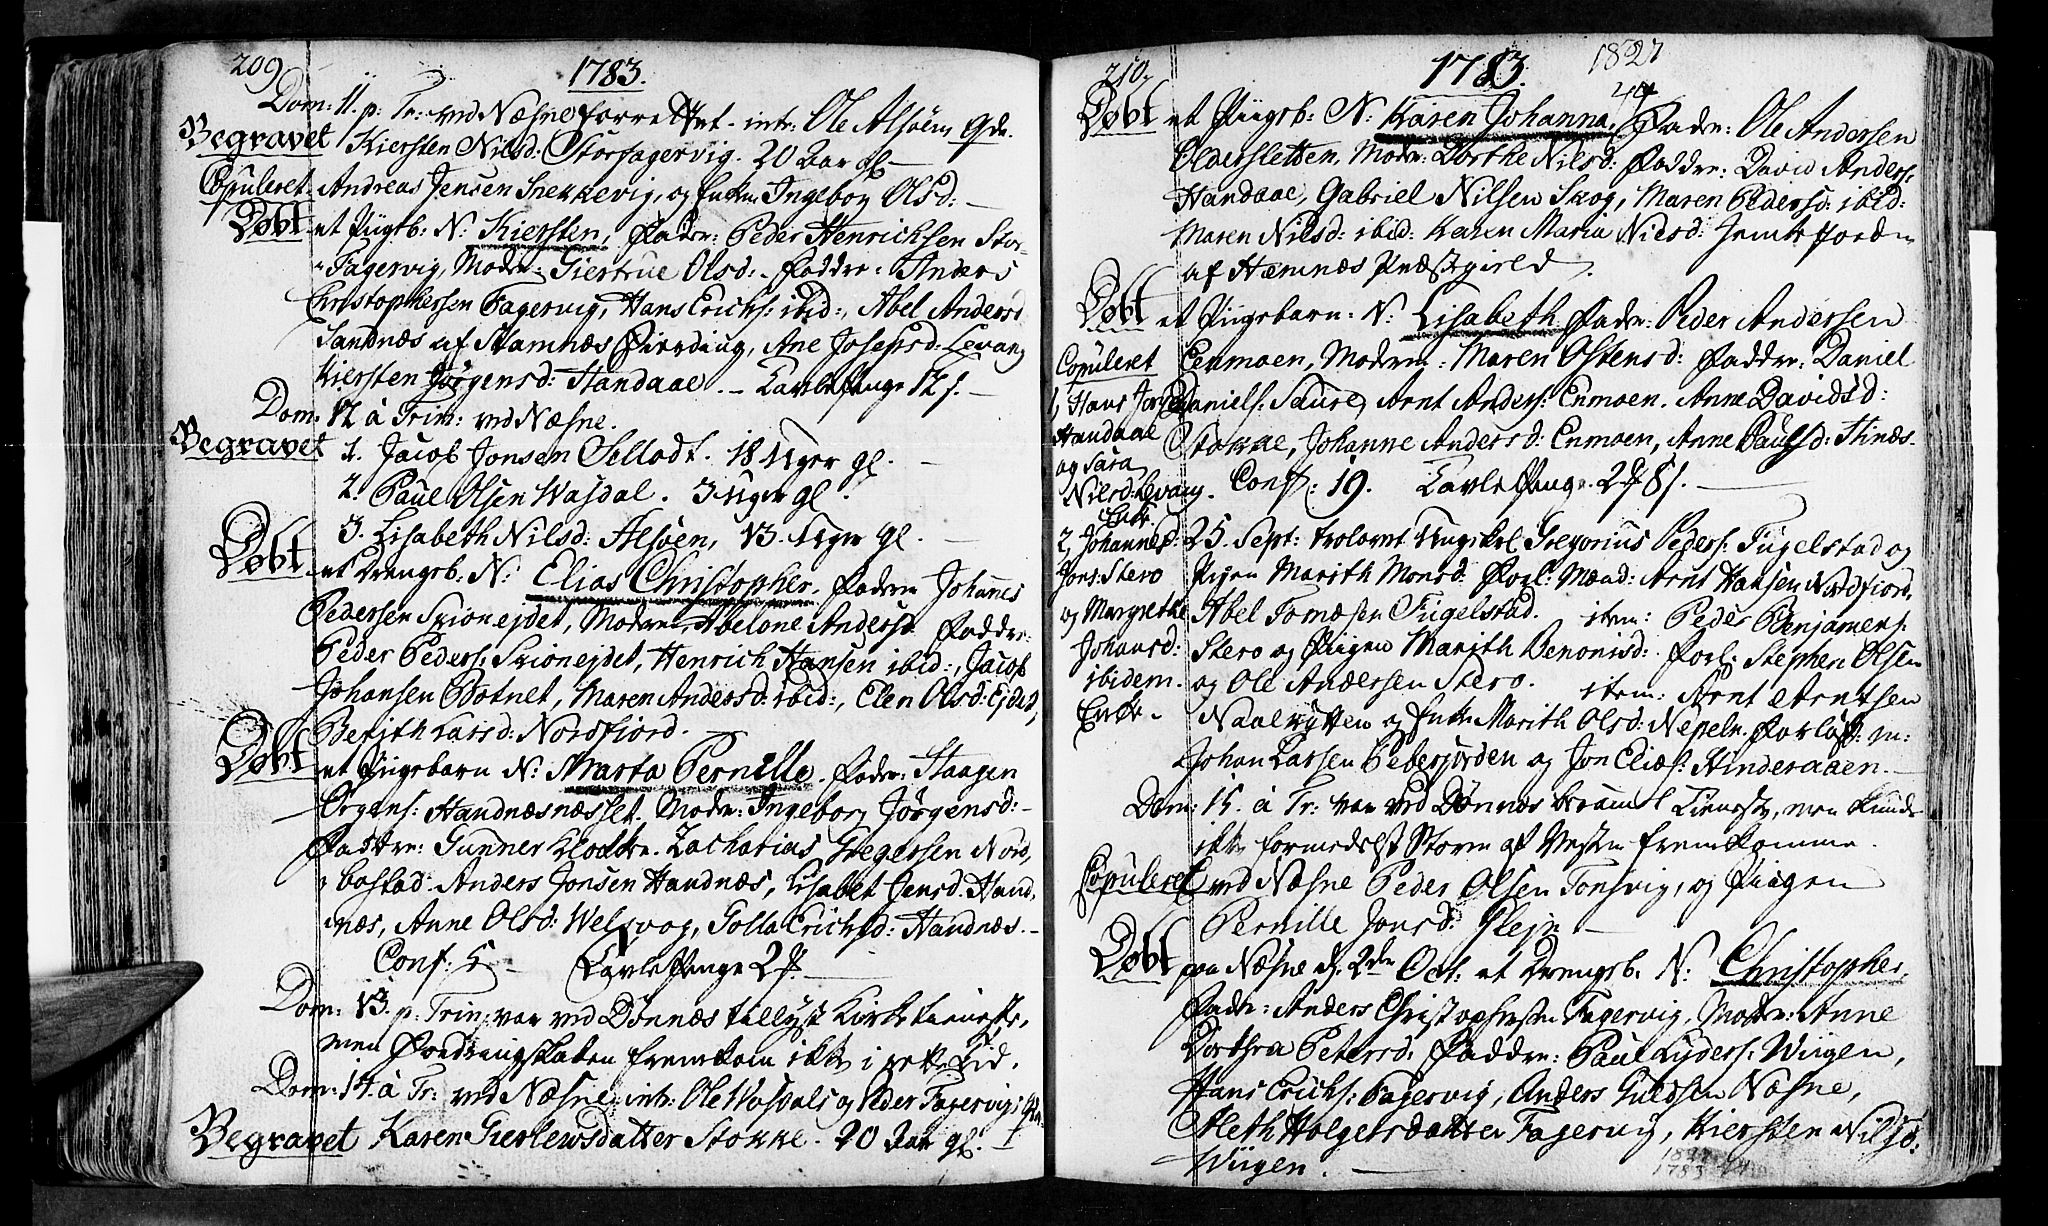 209
1783.
Dom: 11. p: Tr: ved Næsne forrettet. intr: Ole Alsøens Qde.
Begravet Kiersten Nilsd: Storfagervig. 20 Aar gl.
Copuleret. Andreas Jensen Snekkevig, og Enken Ingebor Olsd:
Døbt et Piigeb: N: Kiersten, Fader: Peder Henrichsen Stor-
Fagervig, Moder: Giertrue Olsd: Faddre: Anders
Christophersen Fagervig, Hans Erichs: ibid:, Abel Andersd
Sandnæs af Stamnæs Fierding, Ane Josephsd: Levang
Kiersten Jørgensd: Handaae. - Tavlepenge 12 s.
Dom: 12 à Trin: ved Næsne.
Begravet 1. Jacob Jonsen Selladt. 18 Uger gl.
2. Paul Olsen Wasdal. 3 Uger gl.
3. Lisabeth Nilsd: Alsøen, 13. Uger gl.
Døbt et Drengeb: N: Elias Christopher. Faderen Johanes
Pedersen Skionejdet, Moderen Abelone Andersd Faddre:
Peder Peders: Skionejdet, Henrich Hansen ibid:, Jacob
Johansen Botnet, Maren Andersd: ibid:, Elen Olsd: Ejdet,
Berith Larsd: Nordfiord.
Døbt et Pigebarn N: Marta Pernille. Fader: Staagen
Ørgens: Handnæsnæsset. Moder: Ingebor Jørgensd:
Faddre: Gunner Klokker. Zacharias Gregersen Nord,
bostad. Anders Jonsen Handnæs, Lisabet Jensd. Hand,
næs, Anne Olsd: Welsvog, Golla Erichsd: Handnæs.
Conf: 5 Tavlepenge 2
Dom: 13. p: Trin: var ved Dønnæs tillyst Kirketieneste,
men Fordringskaben fremkom ikke i rette Tid.
Dom: 14. à Tr: ved Næsne. intr: Ole Wasdals og Peder Fagervigs Qdr.
Begravet Karen Gierlewsdatter Stokke. 20 Aar gl.
210,
1783.
1827
44
Døbt et Piigeb: N: Karen Johanna, Fader: Ole Andersen
Oldersletten, Moder: Dorthe Nilsd: Faddre: David Anders:
Handaae, Gabriel Nilsen Skog, Maren Pedersd: ibid:
Maren Nilsd: ibid: Karen Maria Nilsd:
af Hæmnæs Præstegield.
Døbt et Piigebarn: N: Lisabeth Fader: Peder Andersen
Enmoen, Moderen: Maren Ostensd: Faddre: Daniel
Daniels: Saure, Arnt Anders: Enmoen. Anne Davidsd:
Stokke, Johanne Andersd: Enmoen, Anne Paulsd: Stinæs.
Conf: 19. Tavlepenge. 2 8 s.
Copuleret
1, Hans
Handaae
og Sara
Nilsd: Levang.
Enke
2, Johannes
Jons: Stero
og Margrethe
Johansd:
ibidem.
Enke.
d: 25. Sept: trolovet Ungekarl Gregorius Peders: Fugelstad og
Pigen Marith Monsd: Forl: Mænd: Arnt Hansen Nordfiord,
Abel Tomæsen Fugelstad. item: Peder Benjamins:
Stero og Pigen Marith Benonisd: Forl: Stephen Olsen
og Ole Andersen Stero. item: Arnt Arntsen
Naalrytten og Enken Marith Olsd: Nepeln. Forlov: m:
Johan Larsen Bebersjorden og Jon Elias: Hinderaaen.
Dom: 15. à Tr: var ved Dønnæs berammet Tieneste, men kunde
ikke formedelst Storm af Vesten fremkomme.
Copuleret ved Næsne Peder Olsen Tonsvig, og Piigen
Pernille Jonsd: Glejn
Døbt paa Næsne d. 2den Oct: et Drengeb. N: Christopher,
Fader: Anders Christophersen Fagervig, Moder: Anne
Dorthea Petersd: Faddre: Paul Lyders: Wiigen,
Hans Erichs: Fagervig, Anders Guldsen Næsne,
Aleth Holgersdatter Fagervig, Kiersten Nilsd:
Wiigen.
1827
1783
44